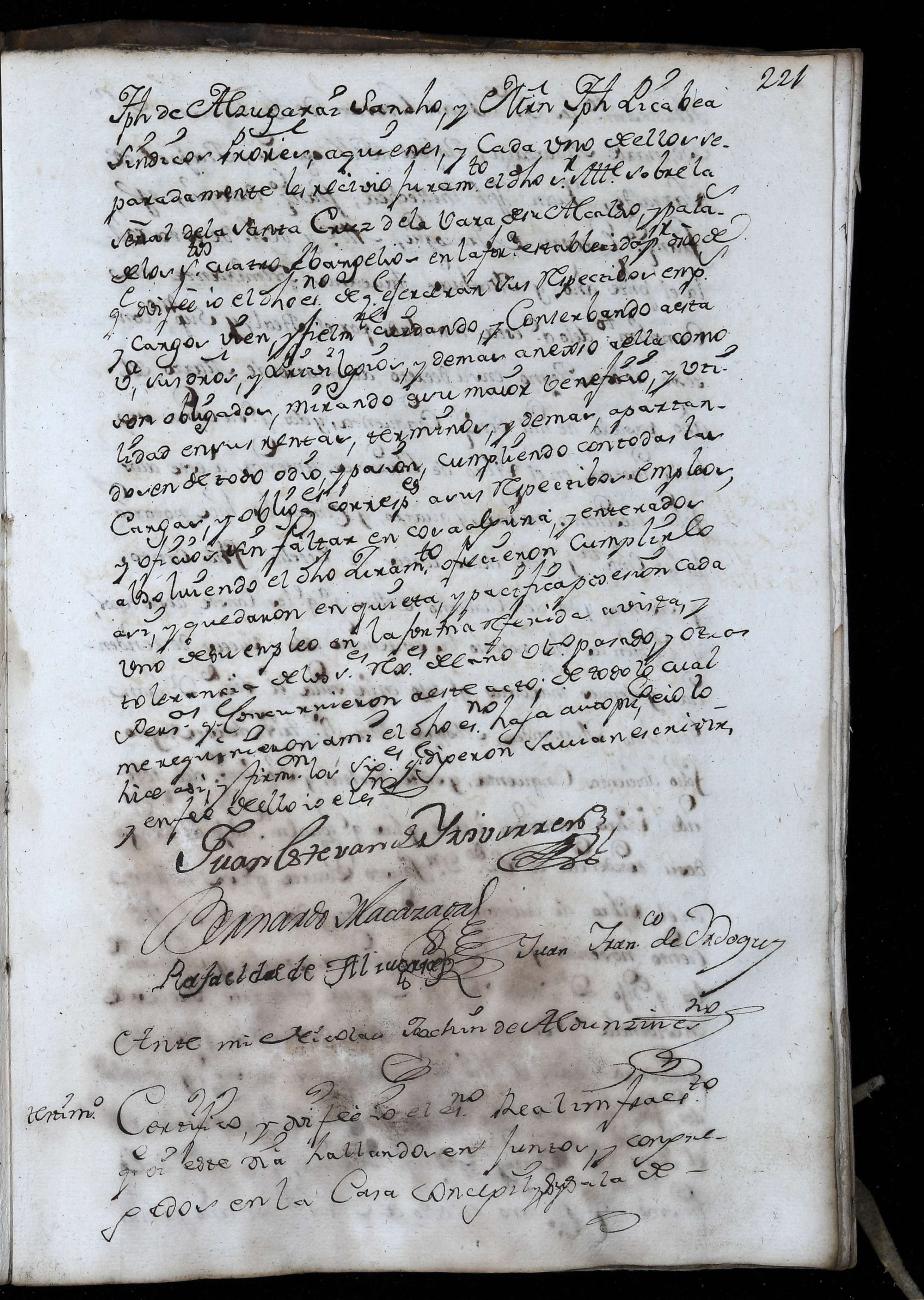 221
Jph de Alzugaraz Sancho, y Mrn Jph Lecabea
Sindicos Prores, aquienes, y Cada uno dellos se-
paradamente les recivio juramto el dho sr Alcte sobre la
señal dela Santa Cruz dela Vara de su Alcaldo, y pala-
delos stos cuatro Ebangelios en la forª establecida pr dro de
q doi feè io el dho esno de q ejerceràn sus respectibos emp
y Cargos vien, y fielmte cuidando, y Conserbando aesta
vª, sus dros, y Privilegios, y demas anexso aella como
son obligados, mirando asu maior venefizio, y uti-
lidad en sus rentas, terminos, y demas, apartan-
dosen de todo odio, y pasion, cumpliendo contodas las
Cargas, y obliges correspes asus respectibos Empleos,
y oficios sin faltar en cosa alguna; y enterados
absoluiendo el dho Juramto ofrecieron Cumplirlo
asi, y quedaron en quieta, y pacifica posesion cada
uno de su empleo en la forma referida avista, y
tolerancia delos ss res del año ulto pasado, y otras
Persas q Concurrieron aeste acto; de todo lo cual
me requirieron ami el dho esno haga auto pu, èio lo
hice asi, y firmon los sres q dijeron savian escrivir,
y enfeè dello io el esno
Juan Estevan de Yrivarren
Bernardo Macazaga
Rafael de Juan Franco de Ordogui
Ante mi Nicolas Joachin de Aldunzin esno
testimo
Certifico, y doi feè Yo el esno Real infraesto
q oi este dia hallandosen juntos, y congre-
gados en la Casa Concejil sala de -